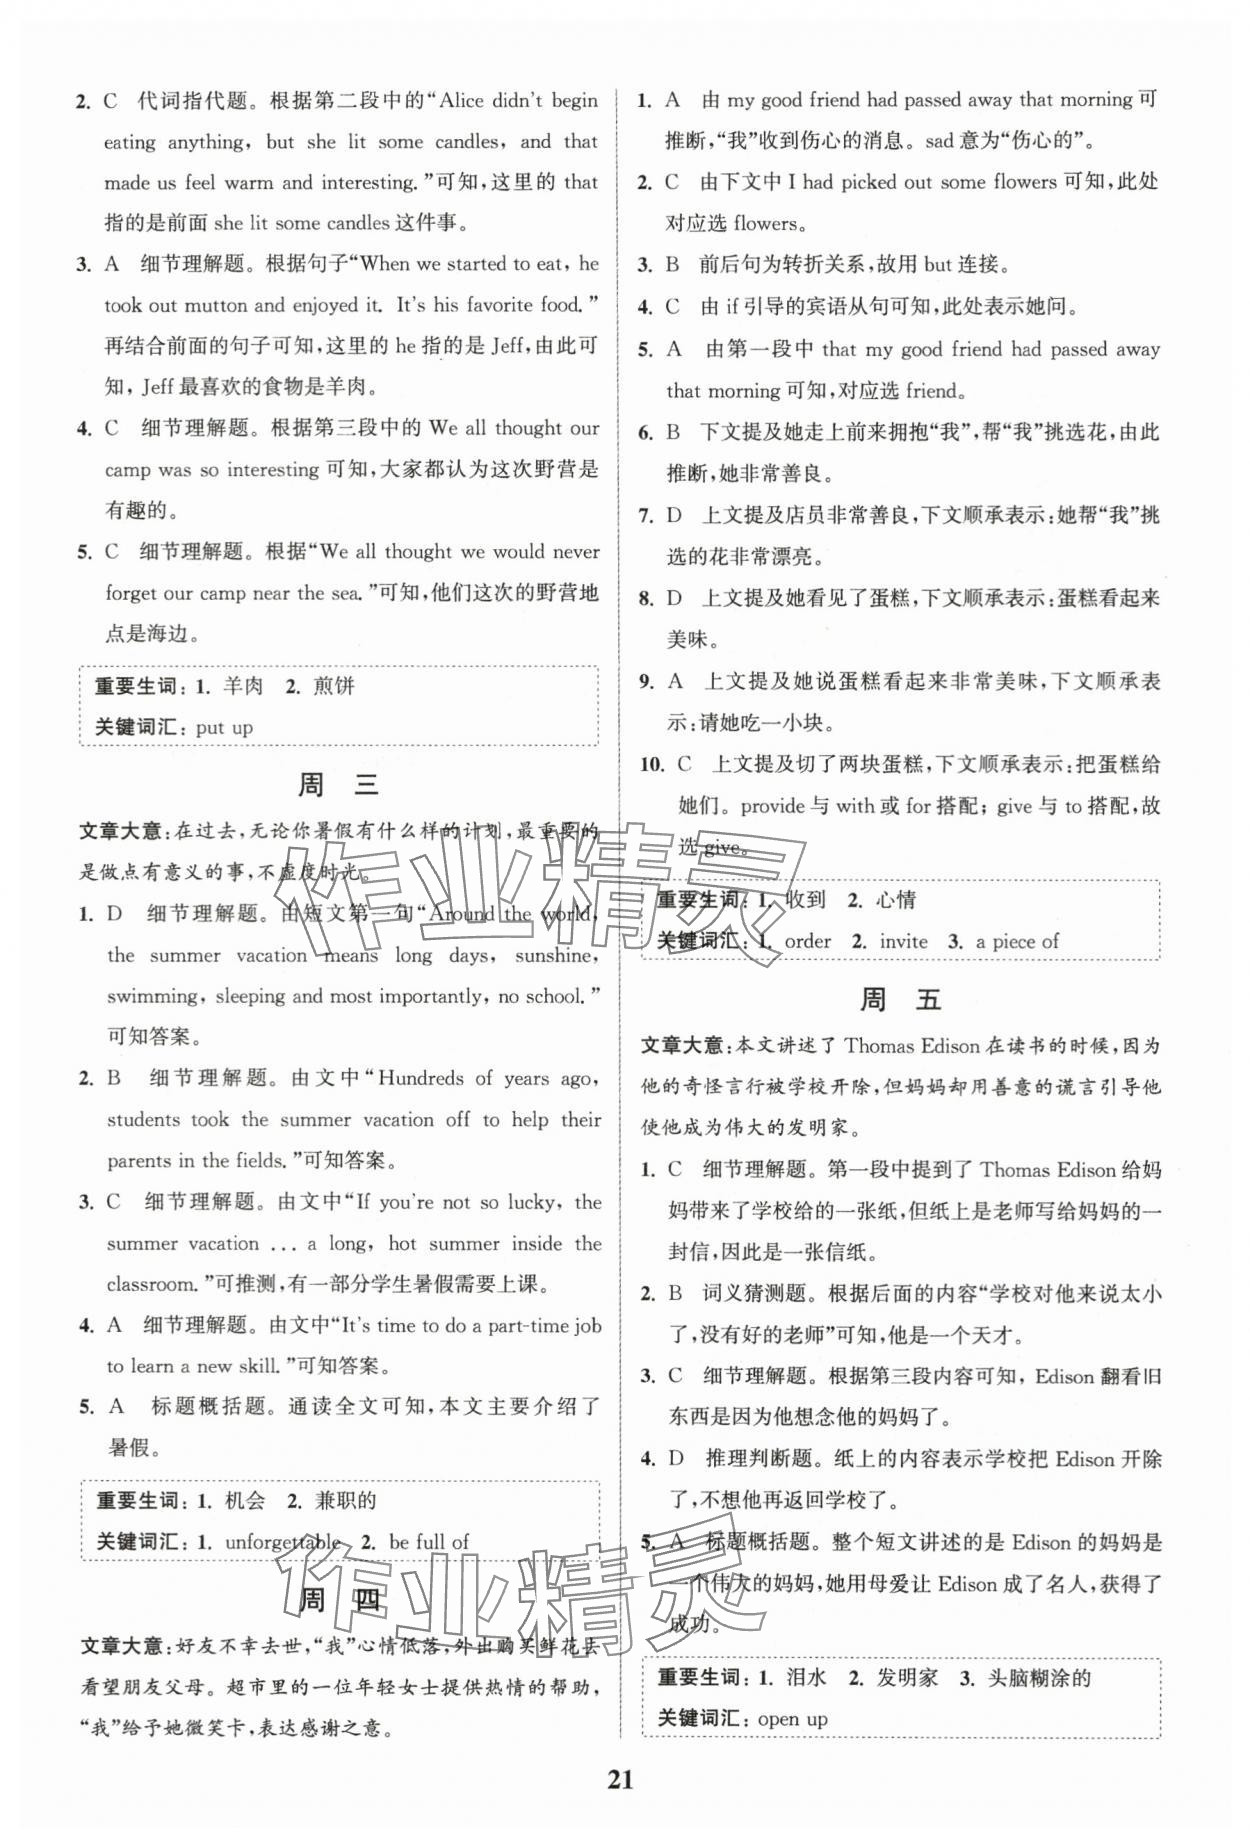 2. C 代词指代题。根据第二段中的“Alice didn't begin
eating anything, but she lit some candles, and that
made us feel warm and interesting.”可知,这里的 that
指的是前面 she lit some candles 这件事。
3. A 细节理解题。根据句子“When we started to eat, he
took out mutton and enjoyed it. It's his favorite food.”
再结合前面的句子可知,这里的 he 指的是 Jeff,由此可
知,Jeff 最喜欢的食物是羊肉。
4. C 细节理解题。根据第三段中的 We all thought our
camp was so interesting 可知,大家都认为这次野营是
有趣的。
5. C 细节理解题。根据“We all thought we would never
forget our camp near the sea.”可知,他们这次的野营地
点是海边。
重要生词: 1. 羊肉 2. 煎饼
关键词汇: put up
周 三
文章大意:在过去,无论你暑假有什么样的计划,最重要的
是做点有意义的事,不虚度时光。
1. D 细节理解题。由短文第一句“Around the world,
the summer vacation means long days, sunshine,
swimming, sleeping and most importantly, no school.”
可知答案。
2. B 细节理解题。由文中“Hundreds of years ago,
students took the summer vacation off to help their
parents in the fields.”可知答案。
3. C 细节理解题。由文中“If you're not so lucky, the
summer vacation ... a long, hot summer inside the
classroom.”可推测,有一部分学生暑假需要上课。
4. A 细节理解题。由文中“It's time to do a part-time job
to learn a new skill.”可知答案。
5. A 标题概括题。通读全文可知,本文主要介绍了
暑假。
重要生词: 1. 机会 2. 兼职的
关键词汇: 1. unforgettable 2. be full of
周 四
文章大意:好友不幸去世,“我”心情低落,外出购买鲜花去
看望朋友父母。超市里的一位年轻女士提供热情的帮助,
“我”给予她微笑卡,表达感谢之意。
1. A 由 my good friend had passed away that morning 可
推断,“我”收到伤心的消息。sad 意为“伤心的”。
2. C 由下文中 I had picked out some flowers 可知,此处
对应选 flowers。
3. B 前后句为转折关系,故用 but 连接。
4. C 由 if 引导的宾语从句可知,此处表示她问。
5. A 由第一段中 that my good friend had passed away
that morning 可知,对应选 friend。
6. B 下文提及她走上前来拥抱“我”,帮“我”挑选花,由此
推断,她非常善良。
7. D 上文提及店员非常善良,下文顺承表示:她帮“我”挑
选的花非常漂亮。
8. D 上文提及她看见了蛋糕,下文顺承表示:蛋糕看起来
美味。
9. A 上文提及她说蛋糕看起来非常美味,下文顺承表
示:请她吃一小块。
10. C 上文提及切了两块蛋糕,下文顺承表示:把蛋糕给
她们。provide 与 with 或 for 搭配; give 与 to 搭配,故
选 give。
重要生词: 1. 收到 2. 心情
关键词汇: 1. order 2. invite 3. a piece of
周 五
文章大意:本文讲述了 Thomas Edison 在读书的时候,因为
他的奇怪言行被学校开除,但妈妈却用善意的谎言引导他
使他成为伟大的发明家。
1. C 细节理解题。第一段中提到了 Thomas Edison 给妈
妈带来了学校给的一张纸,但纸上是老师写给妈妈的一
封信,因此是一张信纸。
2. B 词义猜测题。根据后面的内容“学校对他来说太小
了,没有好的老师”可知,他是一个天才。
3. C 细节理解题。根据第三段内容可知,Edison 翻看旧
东西是因为他想念他的妈妈了。
4. D 推理判断题。纸上的内容表示学校把 Edison 开除
了,不想他再返回学校了。
5. A 标题概括题。整个短文讲述的是 Edison 的妈妈是
一个伟大的妈妈,她用母爱让 Edison 成了名人,获得了
成功。
重要生词: 1. 泪水 2. 发明家 3. 头脑糊涂的
关键词汇: open up
21
作业精灵
作业精灵